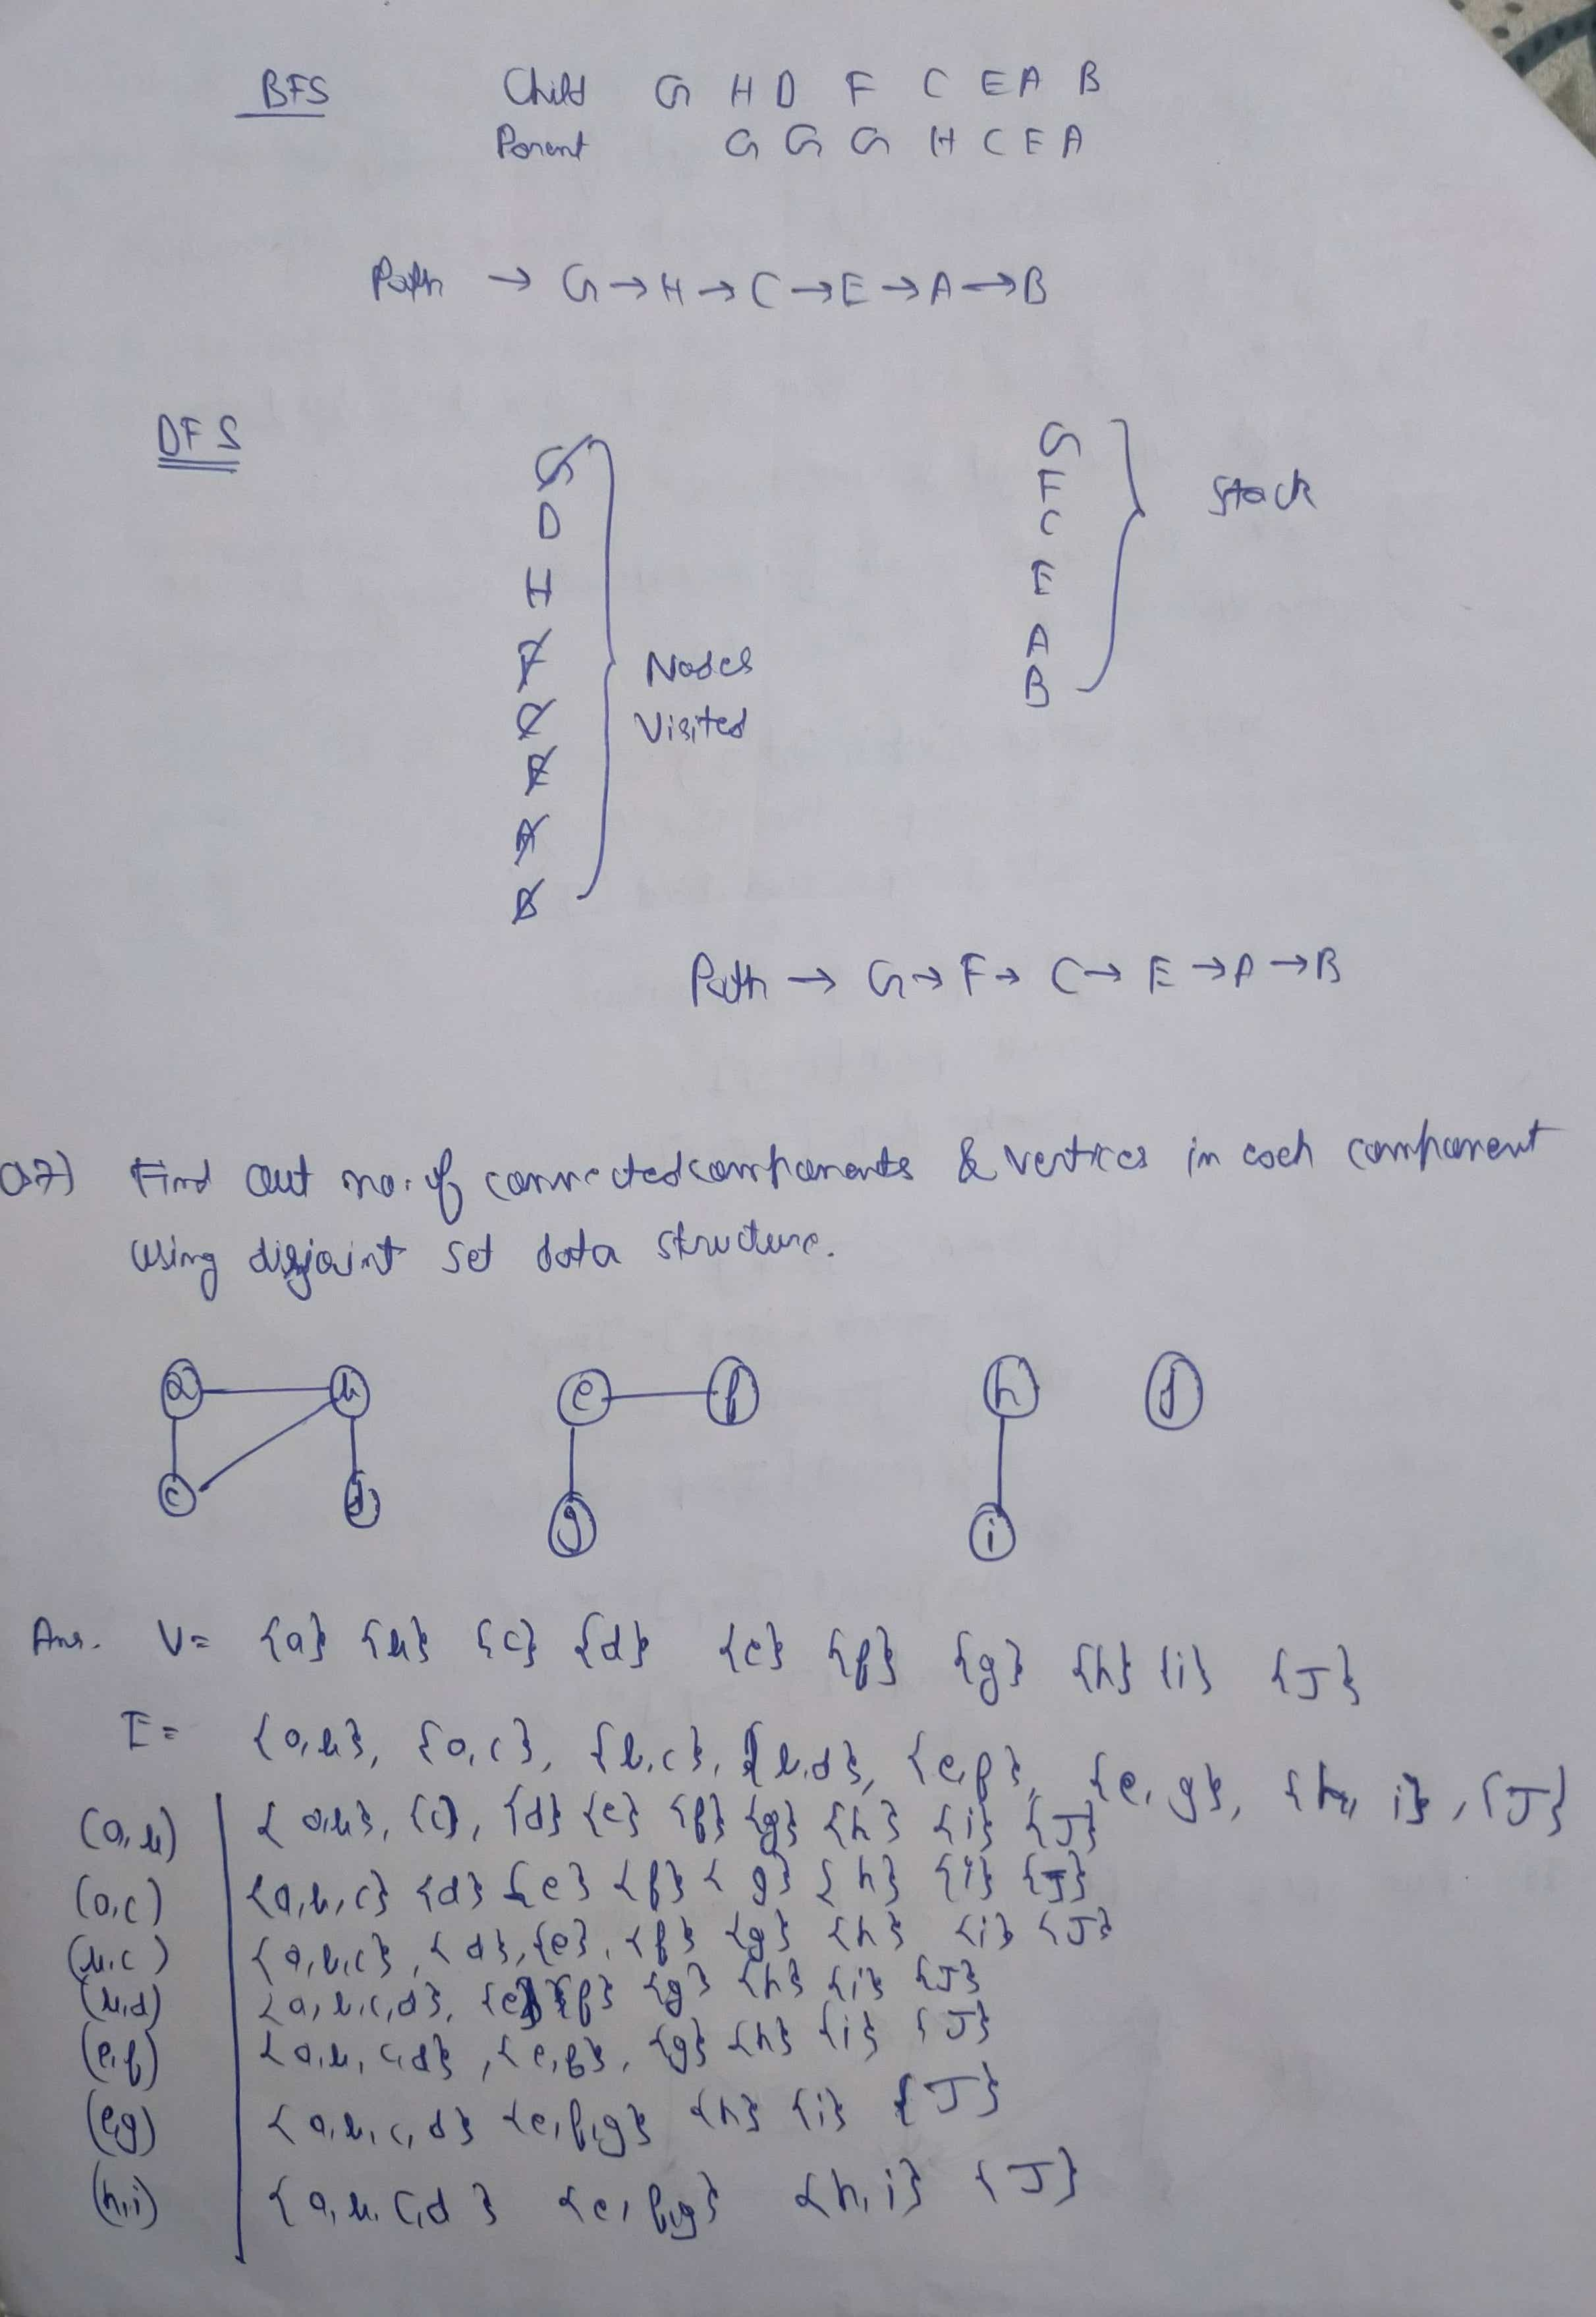 BFS Child G H D F C E A B
Parent G G G H C E A
Path → G → H → C → E → A → B
DFS
G
D
H
F
C
E
A
B
Nodes
Visited
G
F
C
E
A
B
Stack
Path → G → F → C → E → A → B
Q7) Find out no. of connected components & vertices in each component
using disjoint set data structure.
a b e f h j
c d g i
Ans. V= {a} {b} {c} {d} {e} {f} {g} {h} {i} {J}
E= {a,b}, {a,c}, {b,c}, {b,d}, {e,f}, {e,g}, {h,i}, {J}
(a,b) {a,b}, {c}, {d} {e} {f} {g} {h} {i} {J}
(a,c) {a,b,c} {d} {e} {f} {g} {h} {i} {J}
(b,c) {a,b,c}, {d}, {e}, {f} {g} {h} {i} {J}
(b,d) {a,b,c,d}, {e} {f} {g} {h} {i} {J}
(e,f) {a,b,c,d}, {e,f}, {g} {h} {i} {J}
(e,g) {a,b,c,d} {e,f,g} {h} {i} {J}
(h,i) {a,b,c,d} {e,f,g} {h,i} {J}